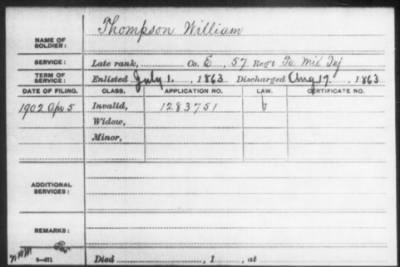 NAME OF SOLDIER: Thompson William
SERVICE: Late rank, Co. E, 57 Reg't Pa Mil Inf
TERM OF SERVICE: Enlisted July 1, 1863 Discharged Aug 17, 1863
DATE OF FILING. CLASS. APPLICATION NO. LAW. CERTIFICATE NO.
1902 Apr 5 Invalid, 1283751
Widow,
Minor,
ADDITIONAL SERVICES:
REMARKS:
Died , 1 , at